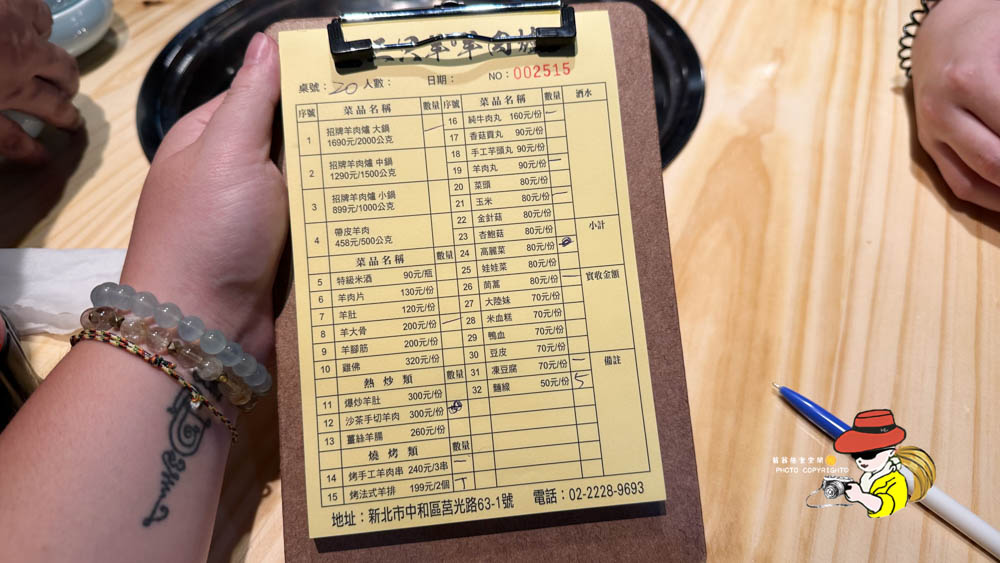 三只羊羊肉爐
桌號：20 人數： 日期： NO：002515
序號 菜品名稱 數量
1 招牌羊肉爐 大鍋 1690元/2000公克
2 招牌羊肉爐 中鍋 1290元/1500公克
3 招牌羊肉爐 小鍋 899元/1000公克
4 帶皮羊肉 458元/500公克
菜品名稱 數量
5 特級米酒 90元/瓶
6 羊肉片 130元/份
7 羊肚 120元/份
8 羊大骨 200元/份
9 羊腳筋 200元/份
10 雞佛 320元/份
熱炒類 數量
11 爆炒羊肚 300元/份
12 沙茶手切羊肉 300元/份
13 薑絲羊腸 260元/份
燒烤類 數量
14 烤手工羊肉串 240元/3串
15 烤法式羊排 199元/2個
序號 菜品名稱 數量
16 純牛肉丸 160元/份
17 香菇貢丸 90元/份
18 手工芋頭丸 90元/份
19 羊肉丸 90元/份
20 菜頭 80元/份
21 玉米 80元/份
22 金針菇 80元/份
23 杏鮑菇 80元/份
24 高麗菜 80元/份
25 娃娃菜 80元/份
26 茼蒿 80元/份
27 大陸妹 70元/份
28 米血糕 70元/份
29 鴨血 70元/份
30 豆皮 70元/份
31 凍豆腐 70元/份
32 麵線 50元/份 5
酒水
小計
實收金額
備註
地址：新北市中和區莒光路63-1號 電話：02-2228-9693
PHOTO COPYRIGHTO